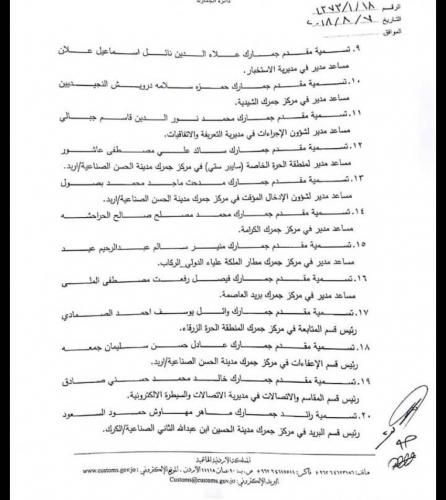 دائرة الجمارك
الرقم ١٨/١/١٢٧٣
التاريخ ٢٠١٨/٨/٧
الموافق
٩. تسمية مقدم جمارك علاء الدين نائل اسماعيل علان
مساعد مدير في مديرية الاستخبار.
١٠. تسمية مقدم جمارك حمزه سلامه درويش النجيديين
مساعد مدير في مركز جمرك الشيدية.
١١. تسمية مقدم جمارك محمد نور الدين قاسم جبالي
مساعد مدير لشؤون الإجراءات في مديرية التعريفة والاتفاقيات.
١٢. تسمية مقدم جمارك سائد علي مصطفى عاشور
مساعد مدير لمنطقة الحرة الخاصة (سايبر ستي) في مركز جمرك مدينة الحسن الصناعية/اربد.
١٣. تسمية مقدم جمارك مدحت ماجد محمد بصول
مساعد مدير لشؤون الإدخال المؤقت في مركز جمرك مدينة الحسن الصناعية/اربد.
١٤. تسمية مقدم جمارك محمد مصلح صالح الحراحشه
مساعد مدير في مركز جمرك الكرامة.
١٥. تسمية مقدم جمارك منير سالم عبدالرحيم عيد
مساعد مدير في مركز جمرك مطار الملكة علياء الدولي/الركاب.
١٦. تسمية مقدم جمارك فيصل رفعت مصطفى الملي
مساعد مدير في مركز جمرك بريد العاصمة.
١٧. تسمية مقدم جمارك وائل يوسف احمد الصمادي
رئيس قسم المتابعة في مركز جمرك المنطقة الحرة الزرقاء.
١٨. تسمية مقدم جمارك عادل حسن سليمان جمعه
رئيس قسم الإعفاءات في مركز جمرك مدينة الحسن الصناعية/اربد.
١٩. تسمية مقدم جمارك خالد محمد حسني صادق
رئيس قسم المقاسم والاتصالات في مديرية الاتصالات والسيطرة الالكترونية.
٢٠. تسمية رائد جمارك ماهر مهاوش حمود السعود
رئيس قسم البريد في مركز جمرك مدينة الحسين ابن عبدالله الثاني الصناعية/الكرك.
المملكة الأردنية الهاشمية
ص.ب ٩٠ عمان ١١١١٨ الأردن . الموقع الإلكتروني: www.customs.gov.jo
البريد الإلكتروني: Customs@customs.gov.jo